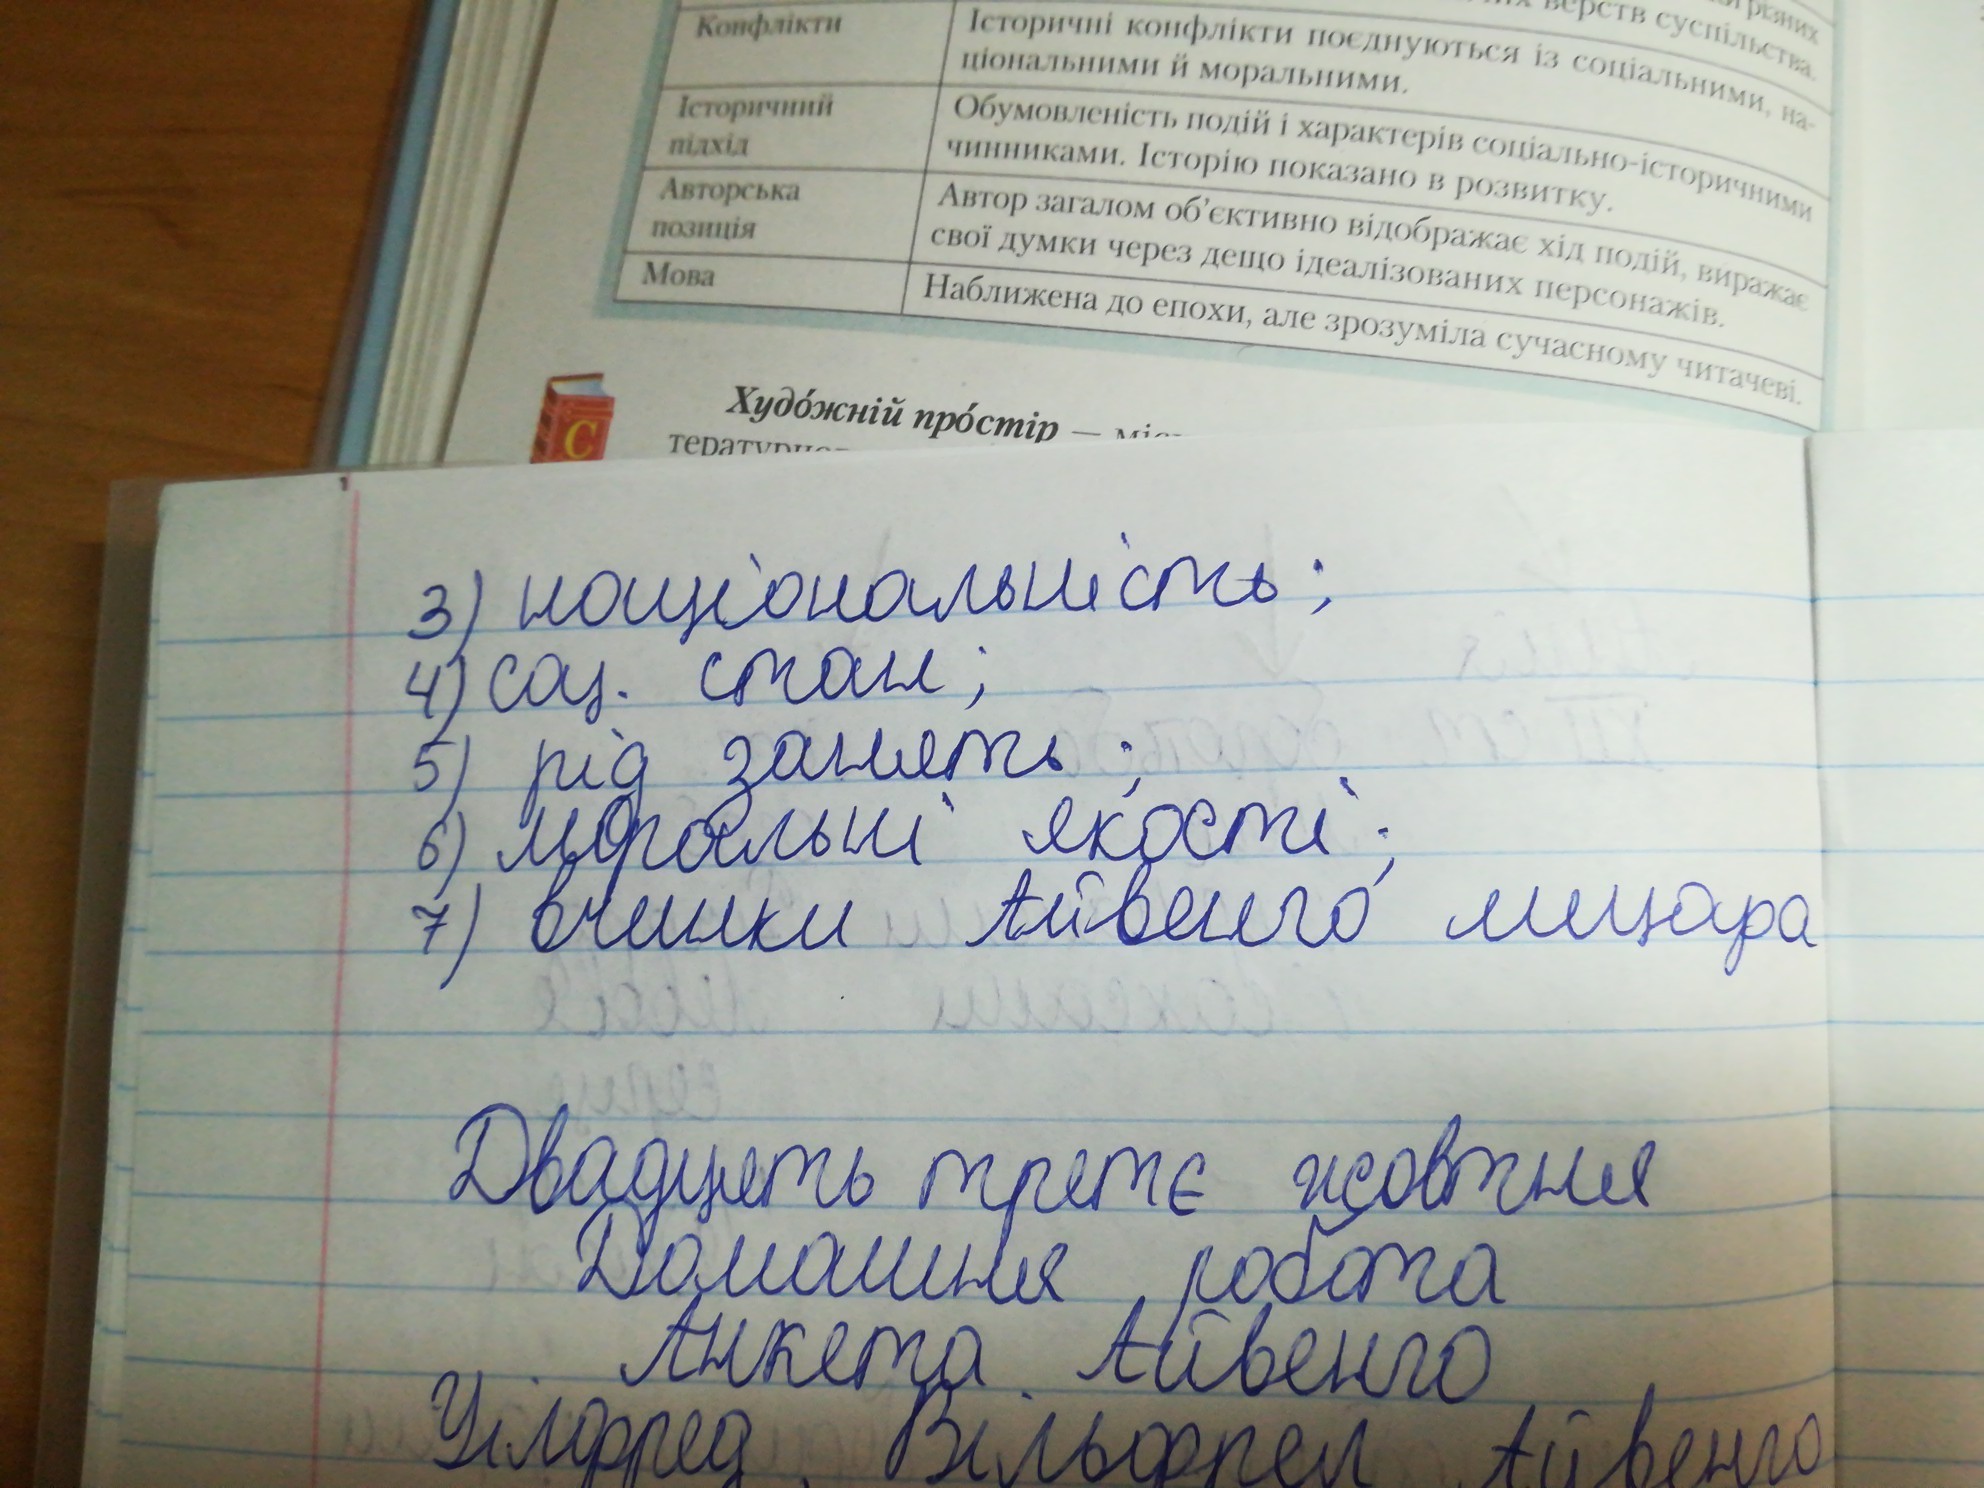 ки різних
них верств суспільства.
Конфлікти
Історичні конфлікти поєднуються із соціальними, на-
ціональними й моральними.
Історичний
підхід
Обумовленість подій і характерів соціально-історичними
чинниками. Історію показано в розвитку.
Авторська
позиція
Автор загалом об’єктивно відображає хід подій, виражає
свої думки через дещо ідеалізованих персонажів.
Мова
Наближена до епохи, але зрозуміла сучасному читачеві.
С
Худо́жній про́стір —
3) національність;
4) соц. стан;
5) рід занять;
6) моральні якості;
7) вчинки Айвенго лицара
Двадцять третє жовтня
Домашня робота
Анкета Айвенго
Уілфред, Вільфред Айвенго